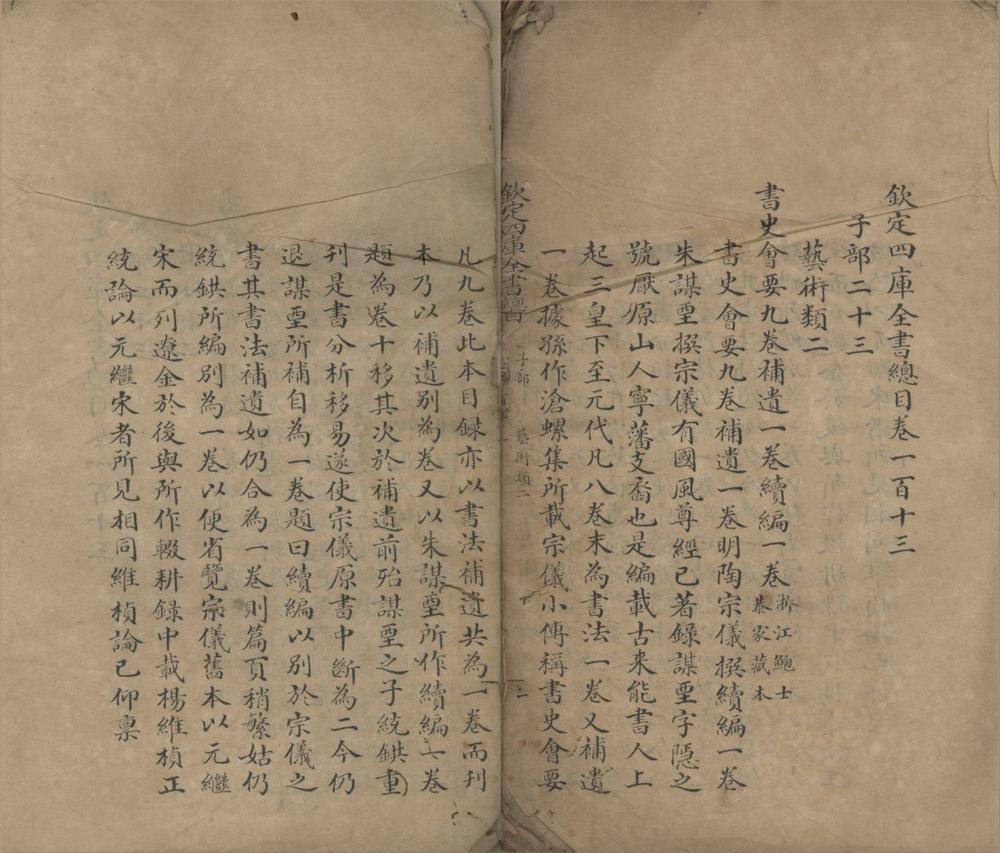 欽定四庫全書總目卷一百十三
子部二十三
藝術類二
書史會要九卷補遺一卷續編一卷浙江鮑士
恭家藏本
書史會要九卷補遺一卷明陶宗儀撰續編一卷
朱謀垔撰宗儀有國風尊經已著錄謀垔字隱之
號厭原山人寧藩支裔也是編載古来能書人上
起三皇下至元代凡八卷末為書法一卷又補遺
一卷據孫作滄螺集所載宗儀小傳稱書史會要
欽定四庫全書總目
子部 藝術類二
一
凡九卷此本目錄亦以書法補遺共為一卷而刋
本乃以補遺别為卷又以朱謀垔所作續編一卷
題為卷十移其次於補遺前殆謀垔之子統鉷重
刋是書分析移易遂使宗儀原書中斷為二今仍
退謀垔所補自為一卷題曰續編以别於宗儀之
書其書法補遺如仍合為一卷則篇頁稍繁姑仍
統鉷所編别為一卷以便省覽宗儀舊本以元繼
宋而列遼金於後與所作輟耕錄中載楊維楨正
統論以元繼宋者所見相同維楨論已仰稟